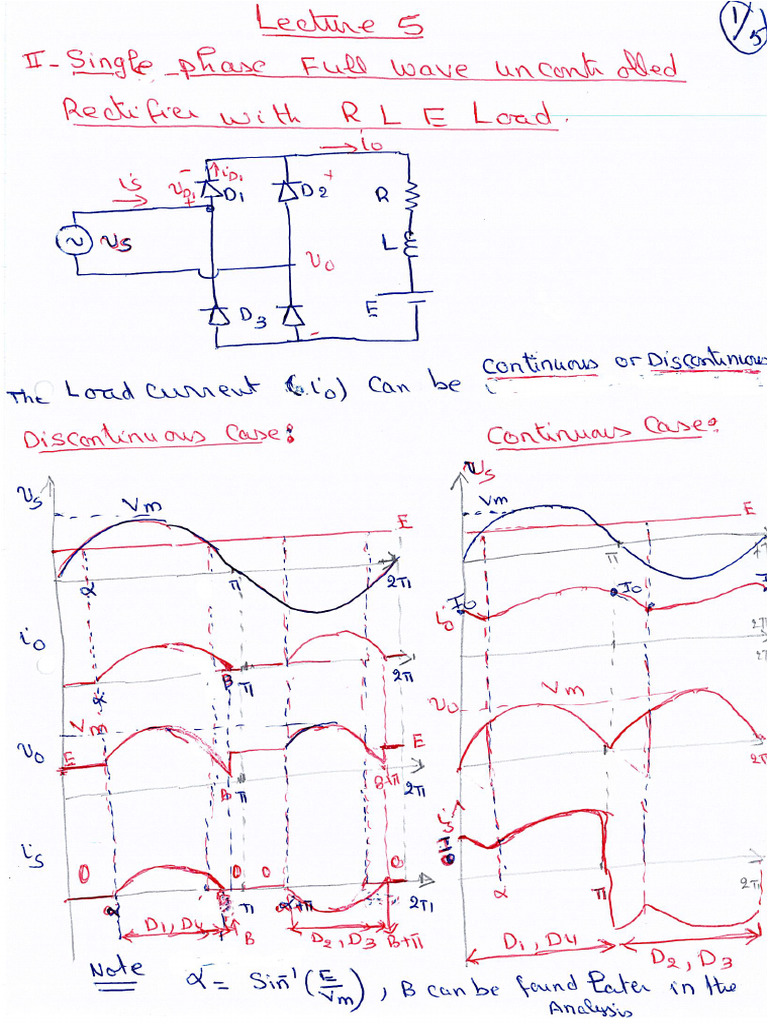 Lecture 5
1/5
II - Single phase Full wave uncontrolled
Rectifier with R L E Load.
io
is
VD1
- +
iD1
D1
D2
+
R
Vs
L
Vo
E
D3
-
The Load current (io) can be Continuous or Discontinuous
Discontinuous Case:
Continuous Case:
Vs
Vm
E
α
π
2π
io
α
B
π
2π
Vm
Vo
E
E
B
π
B+π
2π
is
0
0
0
0
α
π
α+π
2π
D1, D4
B
D2, D3
B+π
Vs
Vm
E
π
io
Io
Io
I
2π
Vo
Vm
2π
is
α
π
2π
D1, D4
D2, D3
Note α = Sin⁻¹ (E/Vm), B can be found Later in the
Analysis